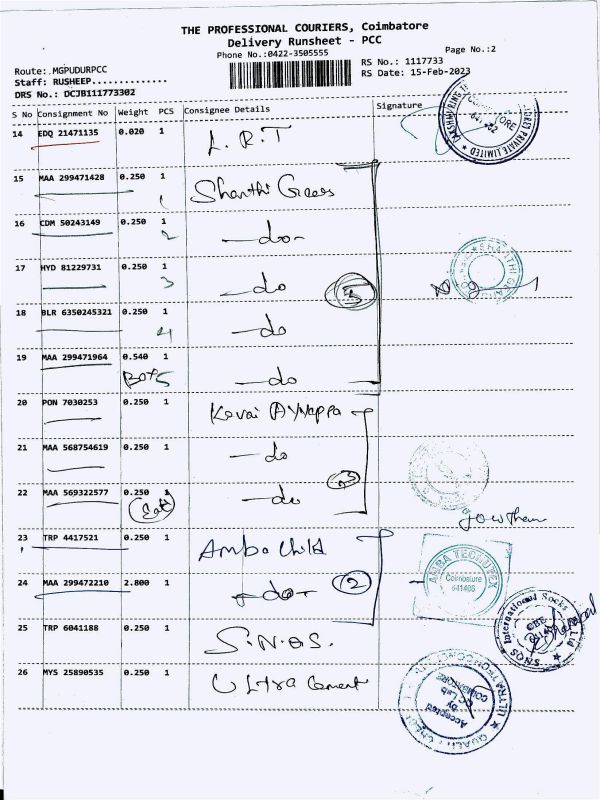 THE PROFESSIONAL COURIERS, Coimbatore
Delivery Runsheet - PCC
Phone No.:0422-3505555
Page No.:2
Route:.MGPUDURPCC
Staff: RUSHEEP..............
DRS No.: DCJB111773302
RS No.: 1117733
RS Date: 15-Feb-2023
S No Consignment No Weight PCS Consignee Details Signature
14 EDQ 21471135 0.020 1 L.R.T
15 MAA 299471428 0.250 1 Shanthi Gears
1
16 CDM 50243149 0.250 1 -do-
2
17 HYD 81229731 0.250 1 -do
3 5
18 BLR 6350245321 0.250 1 -do
4
19 MAA 299471964 0.540 1 -do
Box 5
20 PON 7030253 0.250 1 Kovai Ayyappa
21 MAA 568754619 0.250 1 -do
3
22 MAA 569322577 0.250 1 -do
Gowtham
23 TRP 4417521 0.250 1 Amba Child
24 MAA 299472210 2.800 1 -do- 2
AMBA TECHUTEX
Coimbatore
641406
25 TRP 6041188 0.250 1 S.N.Q.S.
SNQS International Socks
CBE
26 MYS 25890535 0.250 1 Ultra Cement
Accepted
by
QC Lab
COIMBATORE